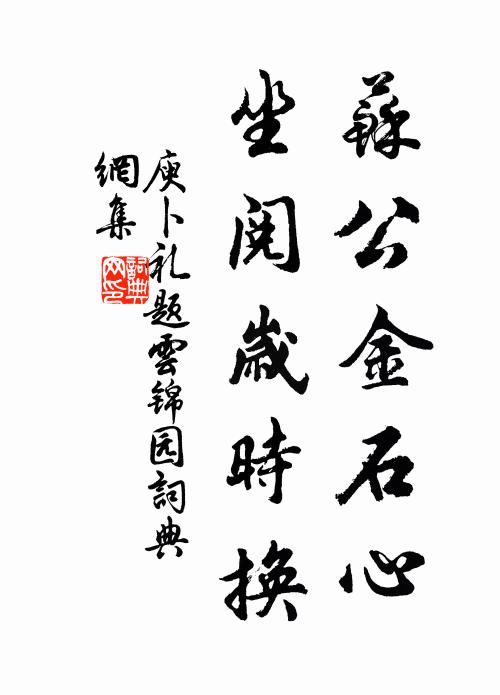 蘇公金石心
坐閱歲時換
庾卜礼題雲锦园詞典
網集
詞典
网印